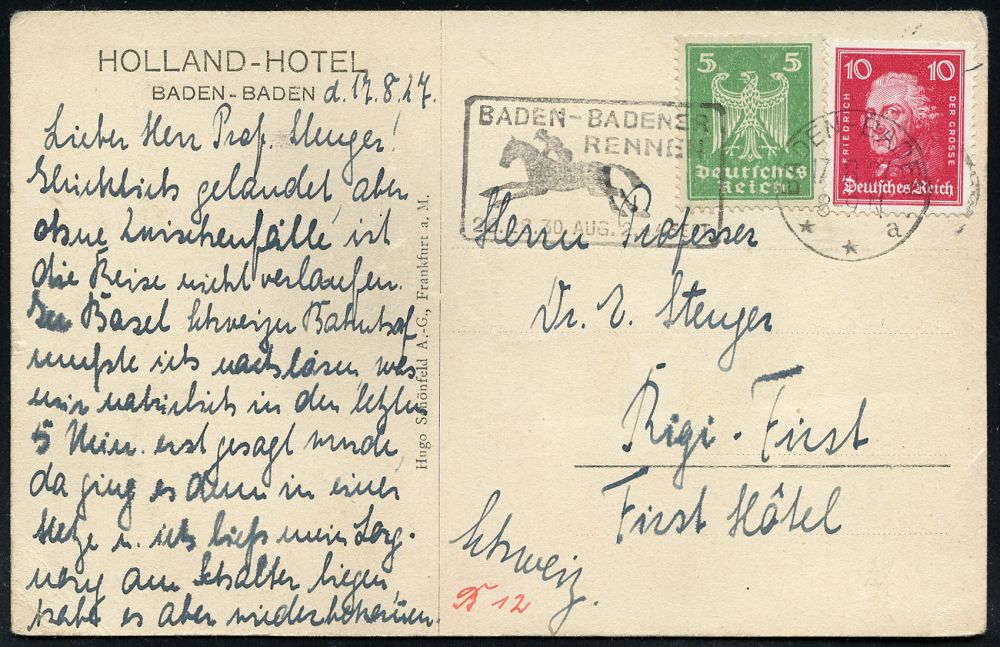 HOLLAND-HOTEL
BADEN-BADEN d. 17.8.27.
Lieber Herr Prof. Stenger!
Glücklich gelandet, aber
ohne Zwischenfälle ist
die Reise nicht verlaufen.
In Basel Schweizer Bahnhof
mußte ich nachlösen, was
mir natürlich in den letzten
5 Min. erst gesagt wurde,
da ging es dann in einer
Hetze u. ich ließ mein Lorg-
nong am Schalter liegen,
habe es aber wiederbekommen.
Hugo Schönfeld A.-G., Frankfurt a. M.
BADEN-BADENER
RENNEN
30. AUG.
5 5
Deutsches
Reich
10 10
FRIEDRICH DER GROSSE
Deutsches Reich
BADEN-BADEN
17
8
a
Herrn Professer
Dr. E. Stenger
Rigi-First
First Hôtel
Schweiz.
12